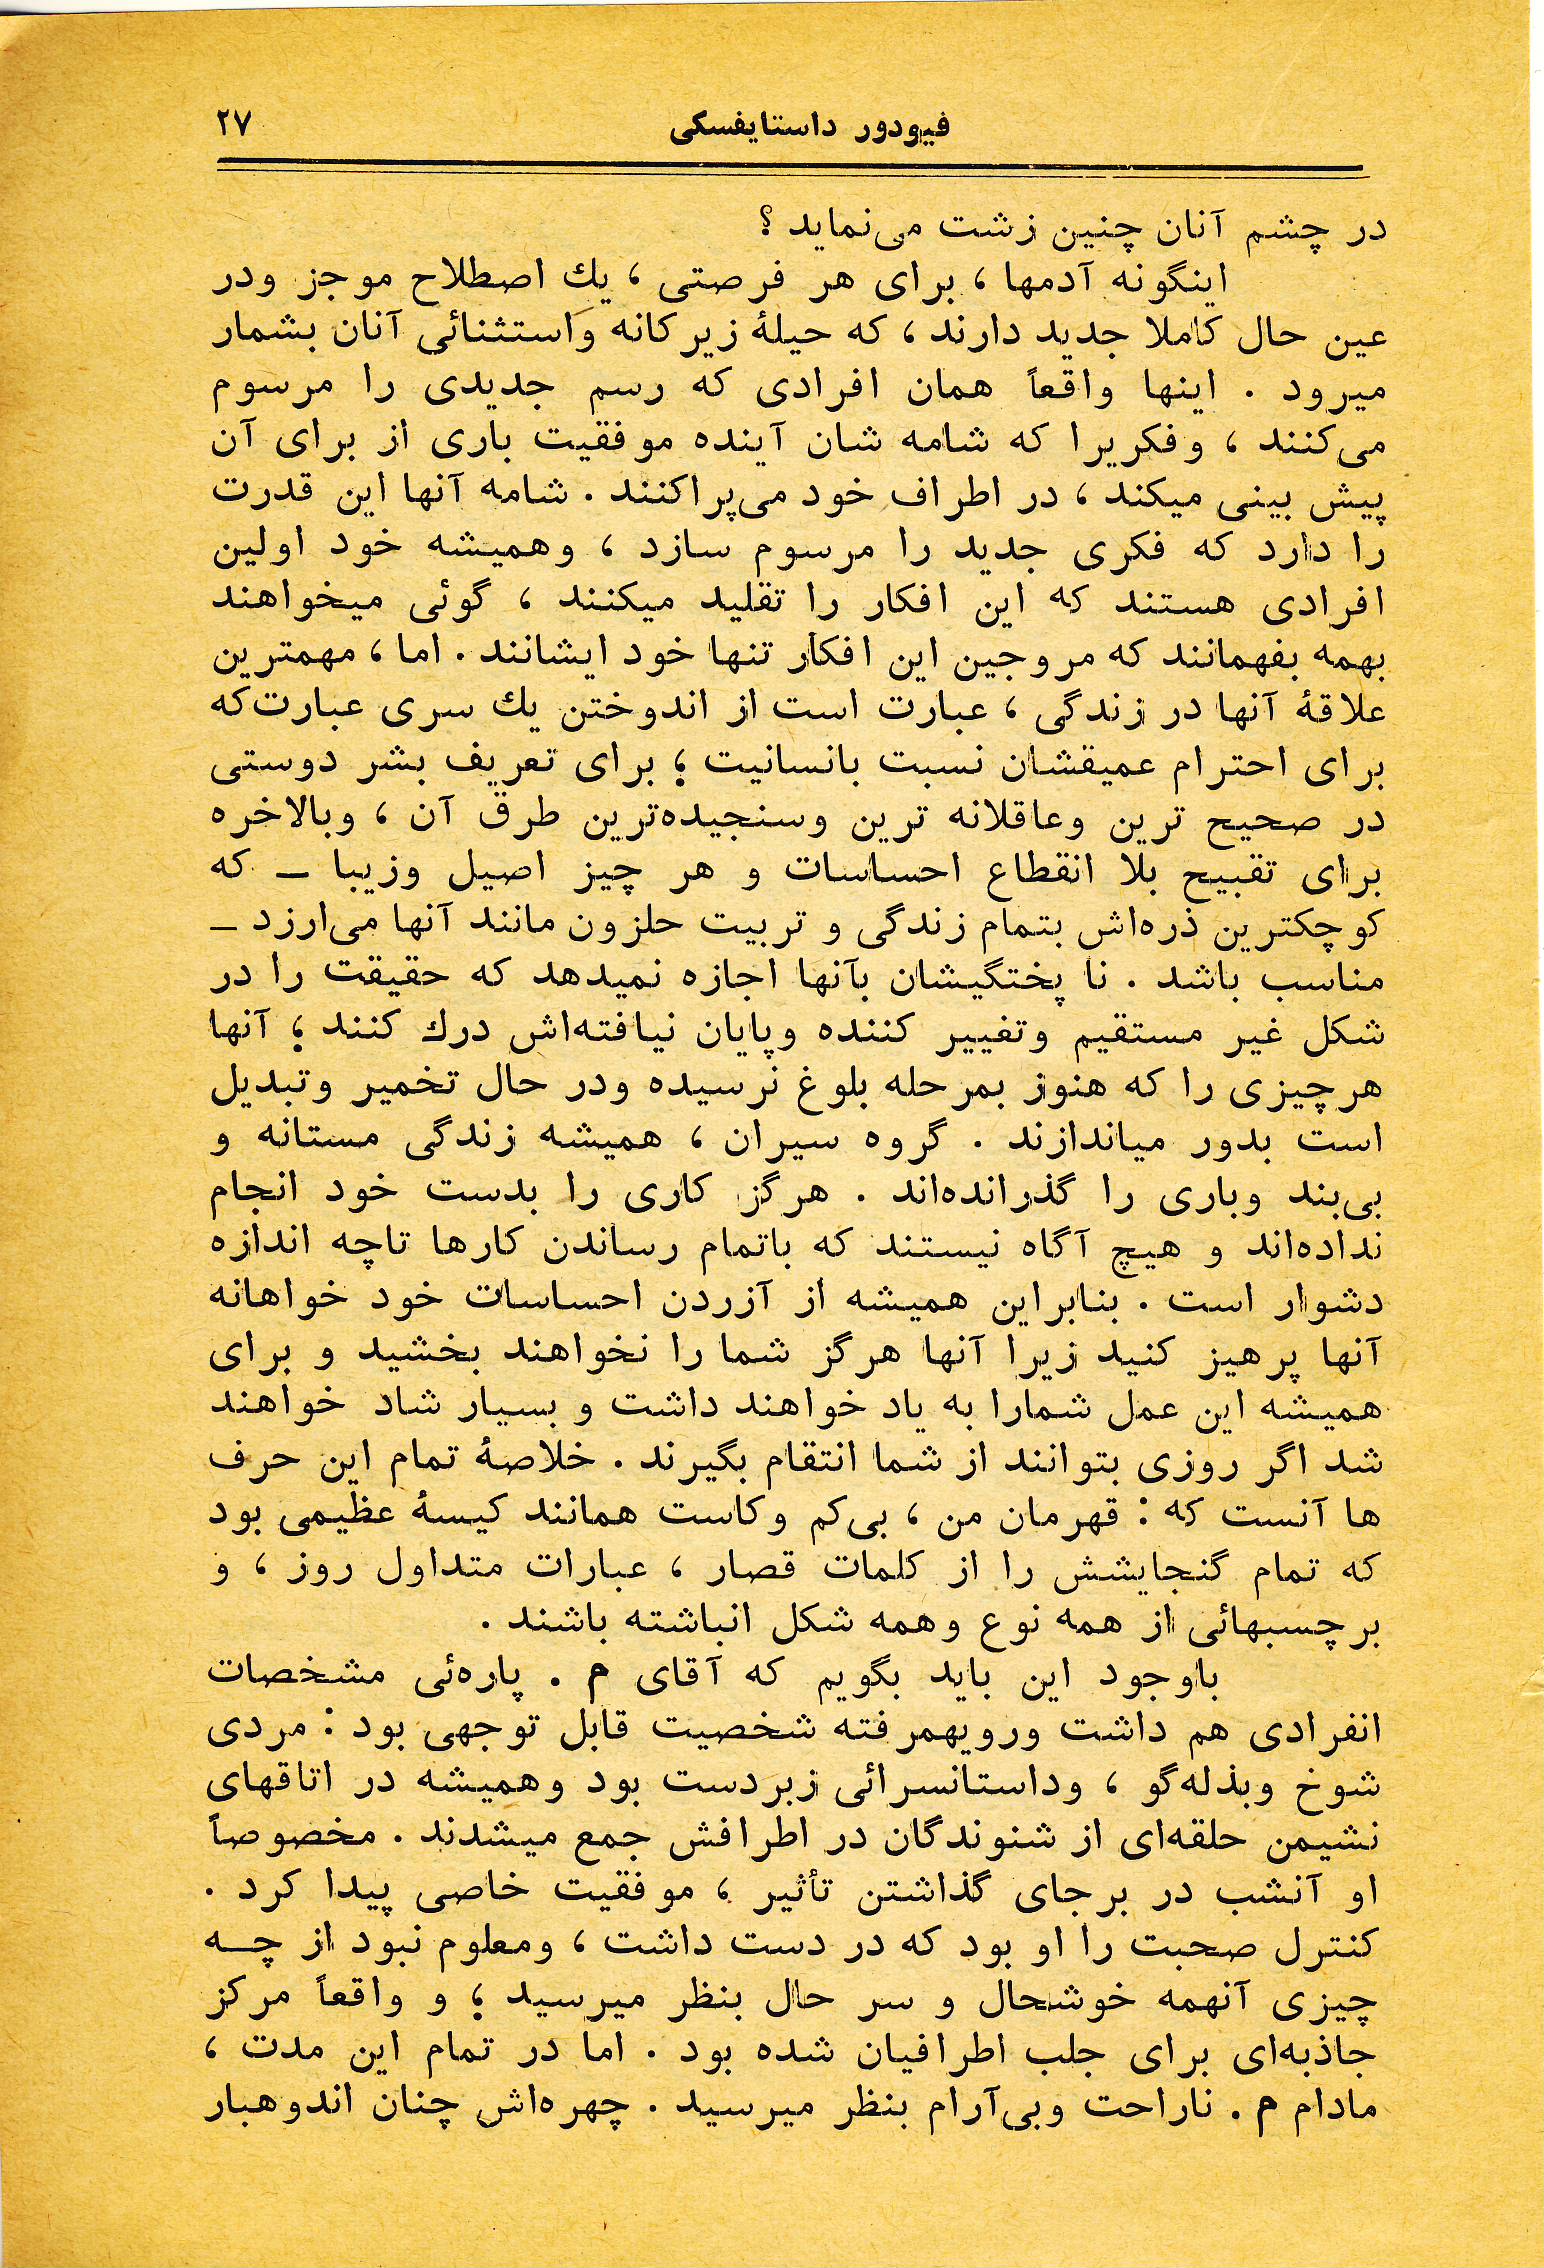 فیودور داستایفسکی ۲۷
در چشم آنان چنین زشت می‌نماید ؟
اینگونه آدمها ، برای هر فرصتی ، یك اصطلاح موجز ودر
عین حال کاملا جدید دارند ، که حیلهٔ زیرکانه واستثنائی آنان بشمار
میرود . اینها واقعاً همان افرادی که رسم جدیدی را مرسوم
می‌کنند ، وفکریرا که شامه شان آینده موفقیت باری از برای آن
پیش بینی میکند ، در اطراف خود می‌پراکنند . شامه آنها این قدرت
را دارد که فکری جدید را مرسوم سازد ، وهمیشه خود اولین
افرادی هستند که این افکار را تقلید میکنند ، گوئی میخواهند
بهمه بفهمانند که مروجین این افکار تنها خود ایشانند . اما ، مهمترین
علاقهٔ آنها در زندگی ، عبارت است از اندوختن یك سری عبارت‌که
برای احترام عمیقشان نسبت بانسانیت ؛ برای تعریف بشر دوستی
در صحیح ترین وعاقلانه ترین وسنجیده‌ترین طرق آن ، وبالاخره
برای تقبیح بلا انقطاع احساسات و هر چیز اصیل وزیبا ــ که
کوچکترین ذره‌اش بتمام زندگی و تربیت حلزون مانند آنها می‌ارزد ــ
مناسب باشد . نا پختگیشان بآنها اجازه نمیدهد که حقیقت را در
شکل غیر مستقیم وتغییر کننده وپایان نیافته‌اش درك کنند ؛ آنها
هرچیزی را که هنوز بمرحله بلوغ نرسیده ودر حال تخمیر وتبدیل
است بدور میاندازند . گروه سیران ، همیشه زندگی مستانه و
بی‌بند وباری را گذرانده‌اند . هرگز کاری را بدست خود انجام
نداده‌اند و هیچ آگاه نیستند که باتمام رساندن کارها تاچه اندازه
دشوار است . بنابراین همیشه از آزردن احساسات خود خواهانه
آنها پرهیز کنید زیرا آنها هرگز شما را نخواهند بخشید و برای
همیشه این عمل شمارا به یاد خواهند داشت و بسیار شاد خواهند
شد اگر روزی بتوانند از شما انتقام بگیرند . خلاصهٔ تمام این حرف
ها آنست که : قهرمان من ، بی‌کم وکاست همانند کیسهٔ عظیمی بود
که تمام گنجایشش را از کلمات قصار ، عبارات متداول روز ، و
برچسبهائی از همه نوع وهمه شکل انباشته باشند .
باوجود این باید بگویم که آقای م . پاره‌ئی مشخصات
انفرادی هم داشت ورویهمرفته شخصیت قابل توجهی بود : مردی
شوخ وبذله‌گو ، وداستانسرائی زبردست بود وهمیشه در اتاقهای
نشیمن حلقه‌ای از شنوندگان در اطرافش جمع میشدند . مخصوصاً
او آنشب در برجای گذاشتن تأثیر ، موفقیت خاصی پیدا کرد .
کنترل صحبت را او بود که در دست داشت ، ومعلوم نبود از چــه
چیزی آنهمه خوشحال و سر حال بنظر میرسید ؛ و واقعاً مرکز
جاذبه‌ای برای جلب اطرافیان شده بود . اما در تمام این مدت ،
مادام م . ناراحت وبی‌آرام بنظر میرسید . چهره‌اش چنان اندوهبار